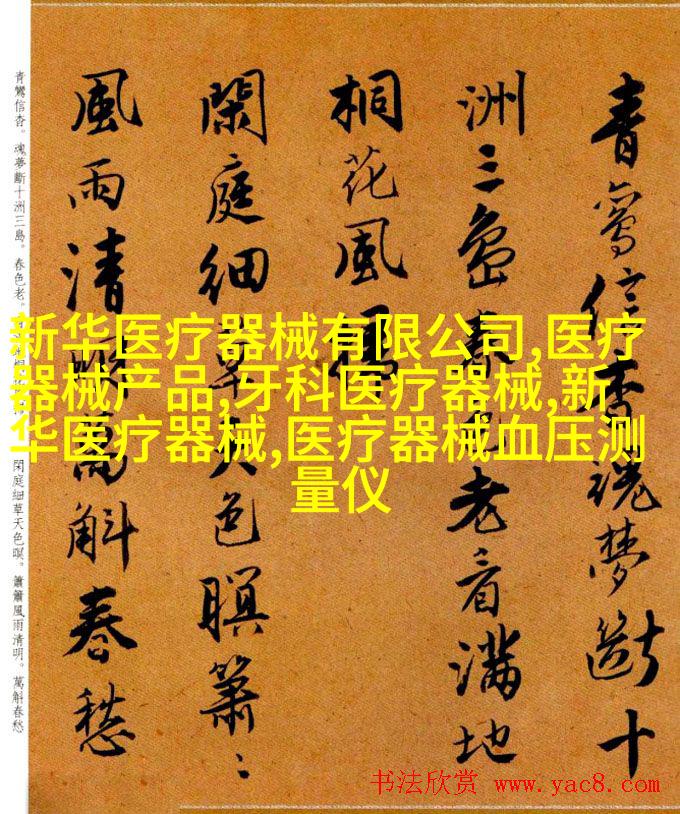 青鸞信杳魂夢斷十
洲三島春色老 滿地
桐花風
閑庭細草天色暝簫〻
風雨清明萬斛春愁
青鸞信杳。魂夢斷十洲三島。春色老。
閑庭細草天色暝。簫簫風雨清明。萬斛春愁
新华医疗器械有限公司,医疗
器械产品,牙科医疗器械,新
华医疗器械,医疗器械血压测
量仪
书法欣赏 www.yac8.com